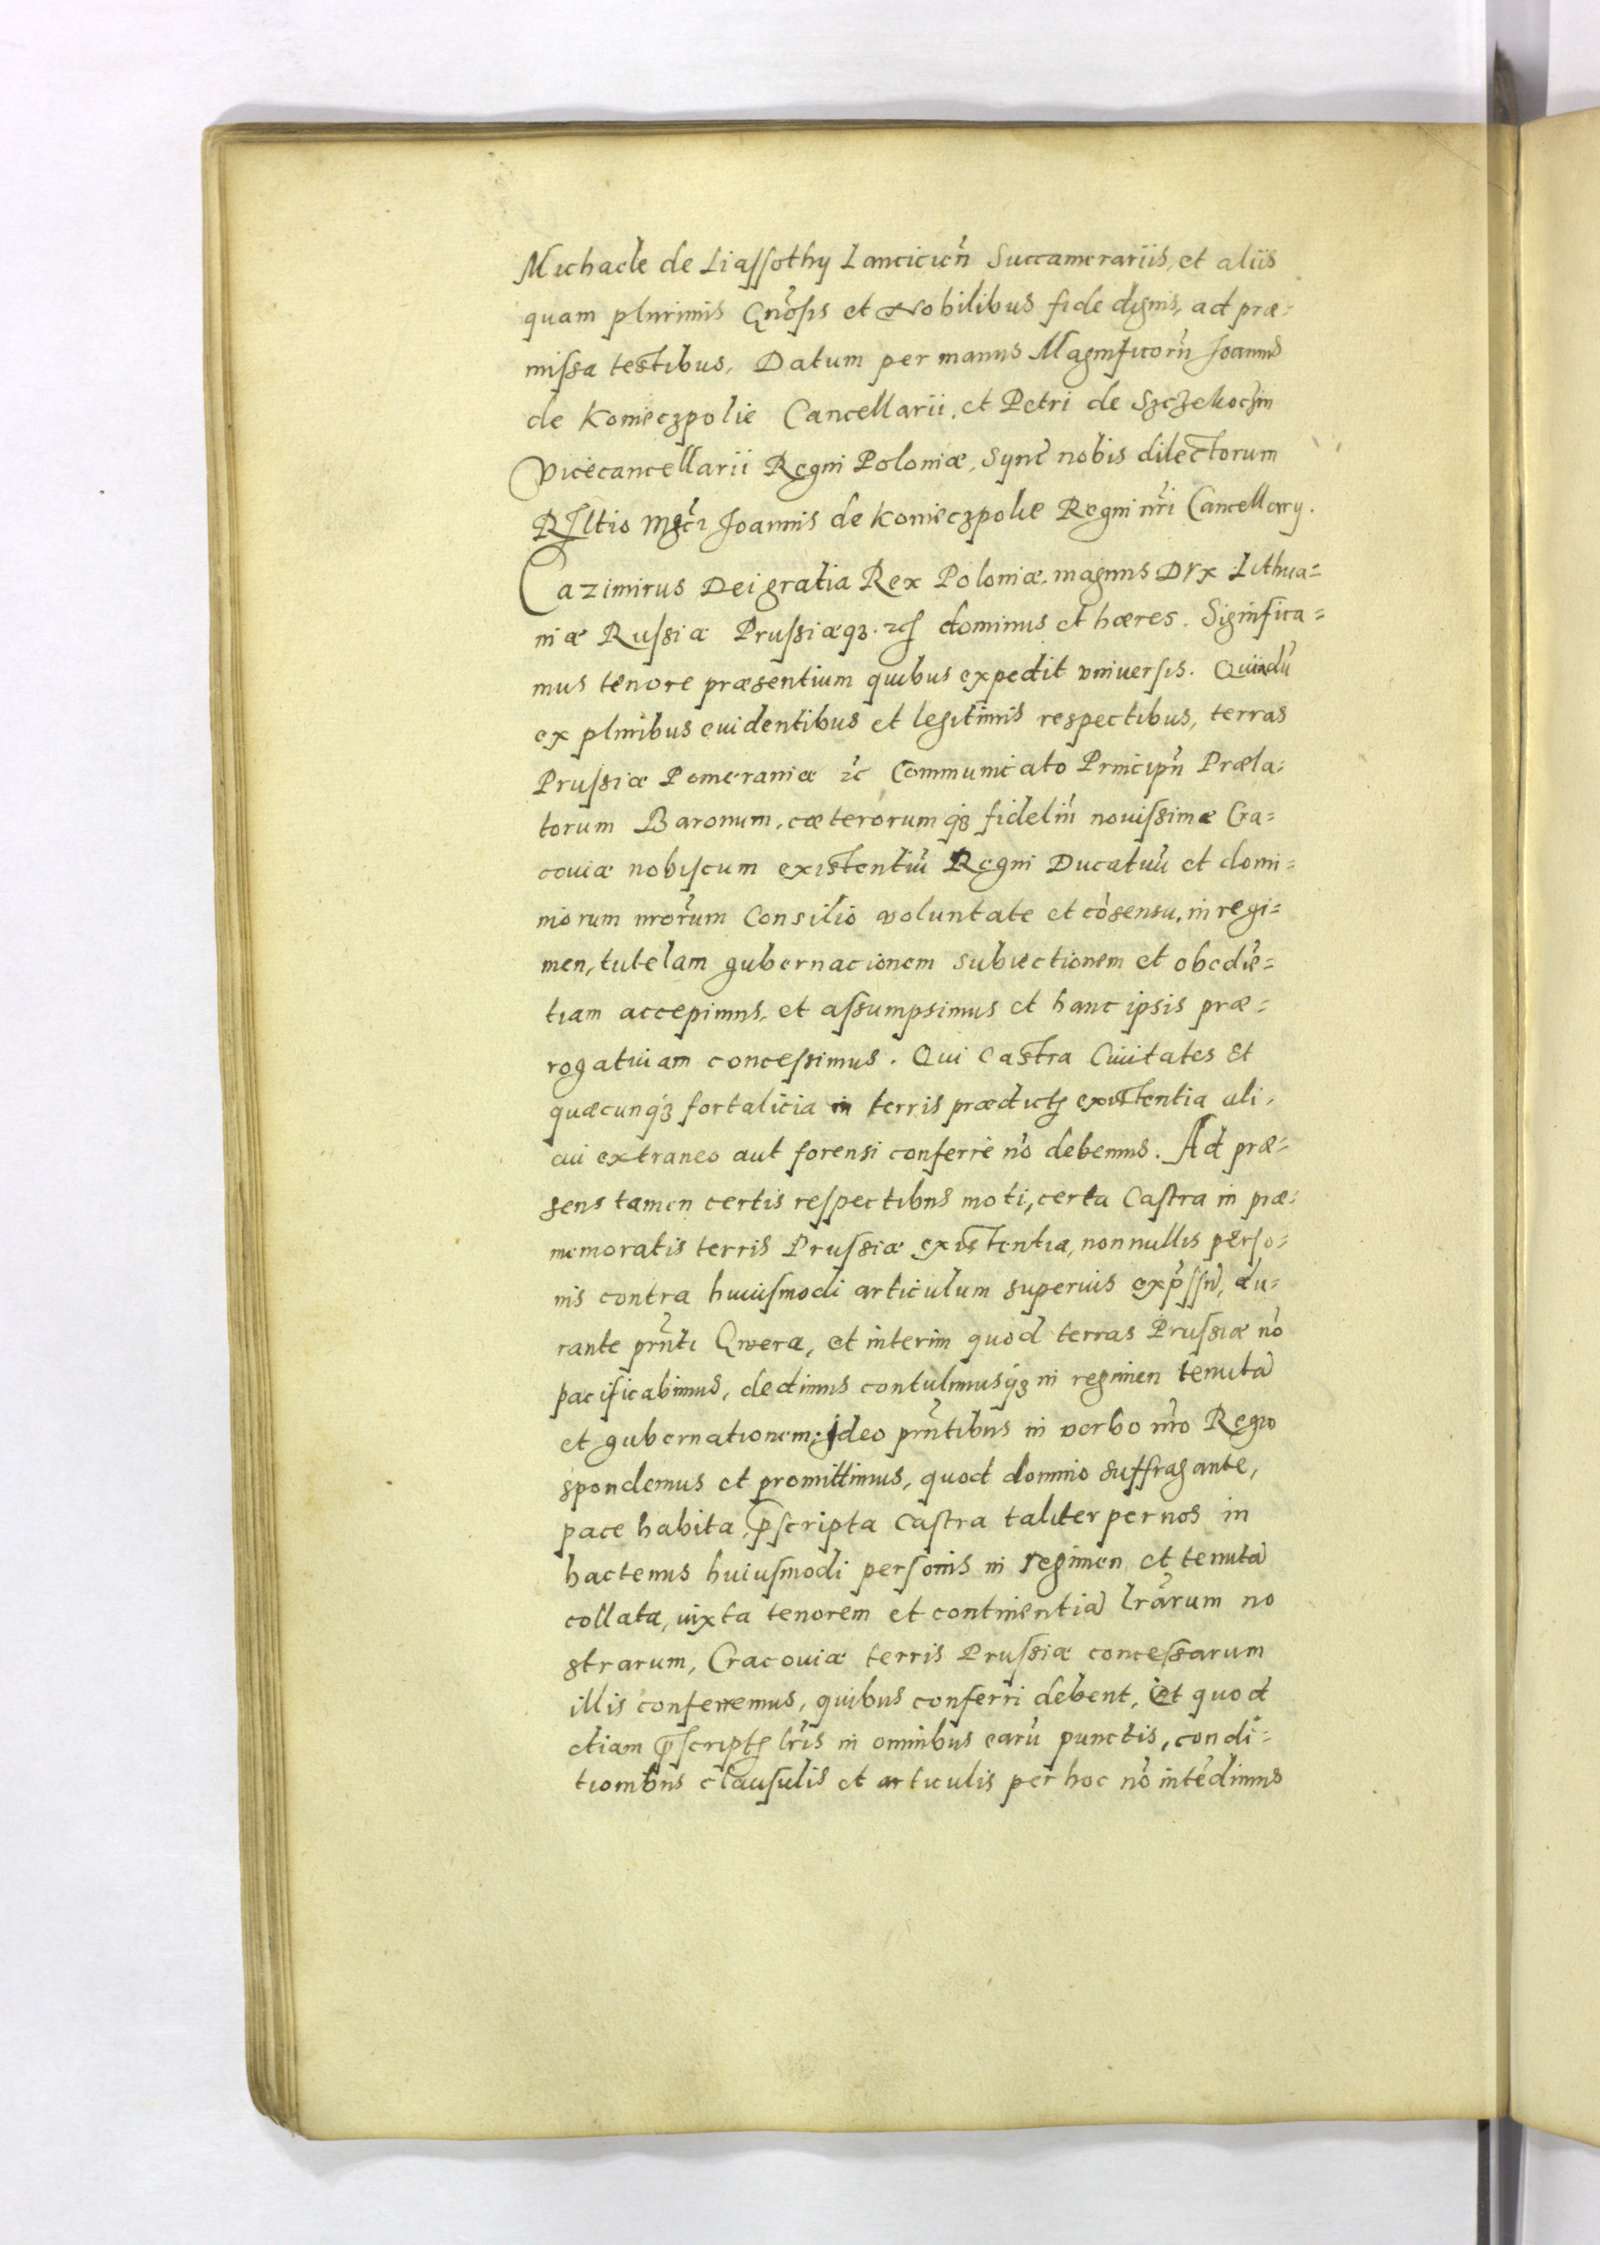 Michaele de Liassothy Lanciciēn Succamerariis, et aliis
quam plurimis Gn̄osis et Nobilibus fide dignis, ad præ-
missa testibus, Datum per manus Magnificorū Joannis
de Konieczpolie Cancellarii, et Petri de Szczekoczin
Vicecancellarii Regni Poloniæ, Syncē nobis dilectorum
Rēltio Mgcī Joannis de Konieczpolie Regni nrī Cancellarij.
Cazimirus Dei gratia Rex Poloniæ, magnus Dux Lithua=
niæ Russiæ Prussiæqȝ ꝛc dominus et hæres. Significa=
mus tenore præsentium quibus expedit vniversis. Quiadū
ex pluribus euidentibus et legitimis respectibus, terras
Prussiæ Pomeraniæ ꝛc Communicato Principū Præla-
torum Baronum, cæterorumqȝ fideliū nouissime Cra=
couiæ nobiscum existentiū Regni Ducatuū et domi=
niorum nrōrum Consilio voluntate et cōsensu, in regi=
men, tutelam gubernacionem subiectionem et obediē=
tiam accepimus, et assumpsimus et hanc ipsis præ=
rogatiuam concessimus. Qui Castra Ciuitates Et
quæcunqȝ fortalicia in terris prædictꝭ existentia ali-
cui extraneo aut forensi conferre nō debemus. Ad præ=
sens tamen certis respectibus moti, certa Castra in præ-
memoratis terris Prussiæ existentia, nonnullis perso-
nis contra huiusmodi articulum superius exp̄ssū, du-
rante prn̄ti Gwera, et interim quod terras Prussiæ nō
pacificabimus, dedimus contulimusqȝ in regimen tenutā
et gubernationem: Ideo prn̄tibus in verbo nrō Regio
spondemus et promittimus, quod domino suffragante,
pace habita, p̄scripta Castra taliter per nos in
hactenus huiusmodi personis in regimen et tenutā
collata, iuxta tenorem et continentiā lrārum no
strarum, Cracouiæ terris Prussiæ concessarum
illis conferremus, quibus conferri debent, Et quod
etiam p̄scriptꝭ lrīs in omnibus earū punctis, condi=
tionibus clausulis et articulis per hoc nō intēdimus